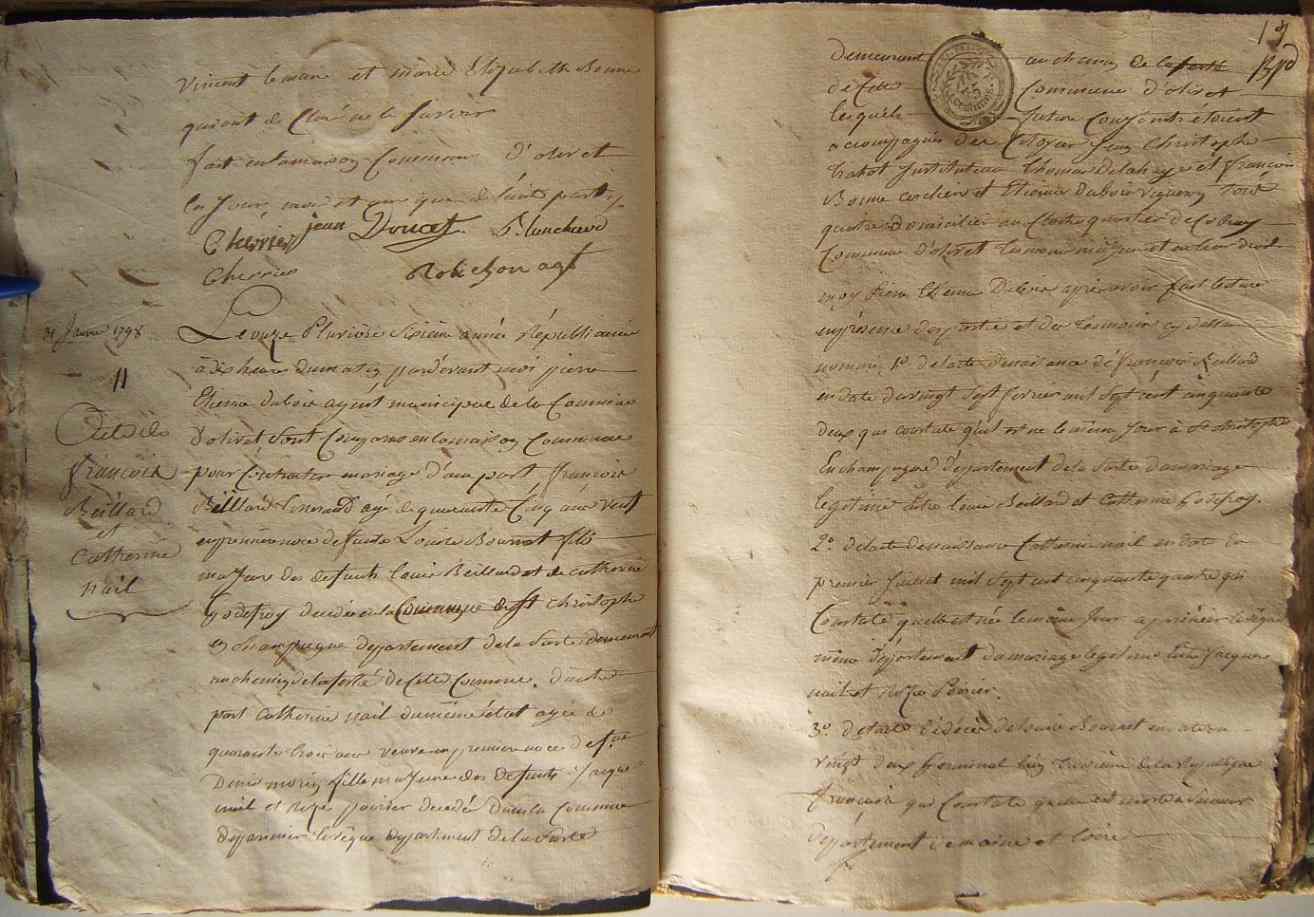 Vincent lemaire et marie Elizabeth Bonne
quiont de Claré ne le savoir
fait enlamaison Commune D'olivet
les Jour, mois et an que dessus
Cherrier jean Doucet Blanchard
Cherrier Robichon agt
31 Janvier 1798
11
Acte de
François
Beillard
et
Catherine
nail
Le onze Pluviôse Sixième année Républicaine
à dix heure dumatin pardevant moi pierre
Etienne dubois agent municipal de la Commune
D'olivet sont Comparus enlamaison Commune
pour Contracter mariage d'une part François
Beillard agé de quarante Cinq ans veuf
enpremière noce de Louise Bournet fils
majeur des defunts louis Beillard et de catherine
godefroy decedés enla Commune de St christophe
en champagne departement dela Sarte demeurant
auchemin delaferté de Cette Commune. d'autre
part Catherine nail dumême état agée de
quarante trois ans veuve enpremière noce de
Denis morin fille majeure des defunts Jacque
nail et poirier decedé dans la Commune
departement dela Sarte
19
demeurant auchemin de laferté
de Cette Commune d'olivet
lesquels futurs Conjoints étoient
accompagnés des Citoyens Jean Christophe
instituteur Thomas Delahaye et François
Bonne cordier et Etienne Dubois vigneron tous
quatre Domiciliés
Commune D'olivet Témoins majeurs
moy Pierre Etienne Dubois après avoir fait lecture
enprésence des parties et des Témoins cy dessus
nommés, 1º. delacte denaissance de françois Beillard
endate duvingt Sept fevrier mil Sept cent cinquante
deux qui constate qu'il est né lemême Jour à St christophe
En champagne département dela Sarte dumariage
legitime dentre louis Beillard et Catherine Godefroy.
2º. delacte denaissance Catherine nail en date du
premier Juillet mil Sept cent cinquante quatre qui
Constate quelle est née lemême Jour
même département dumariage legitime entre Jacques
nail et Poirier.
3º. delacte de décès de louise Bournet en date du
vingt deux Germinal lan troisième dela République
françoise qui Constate quelle est morte à Saumur
departement de maine et loire